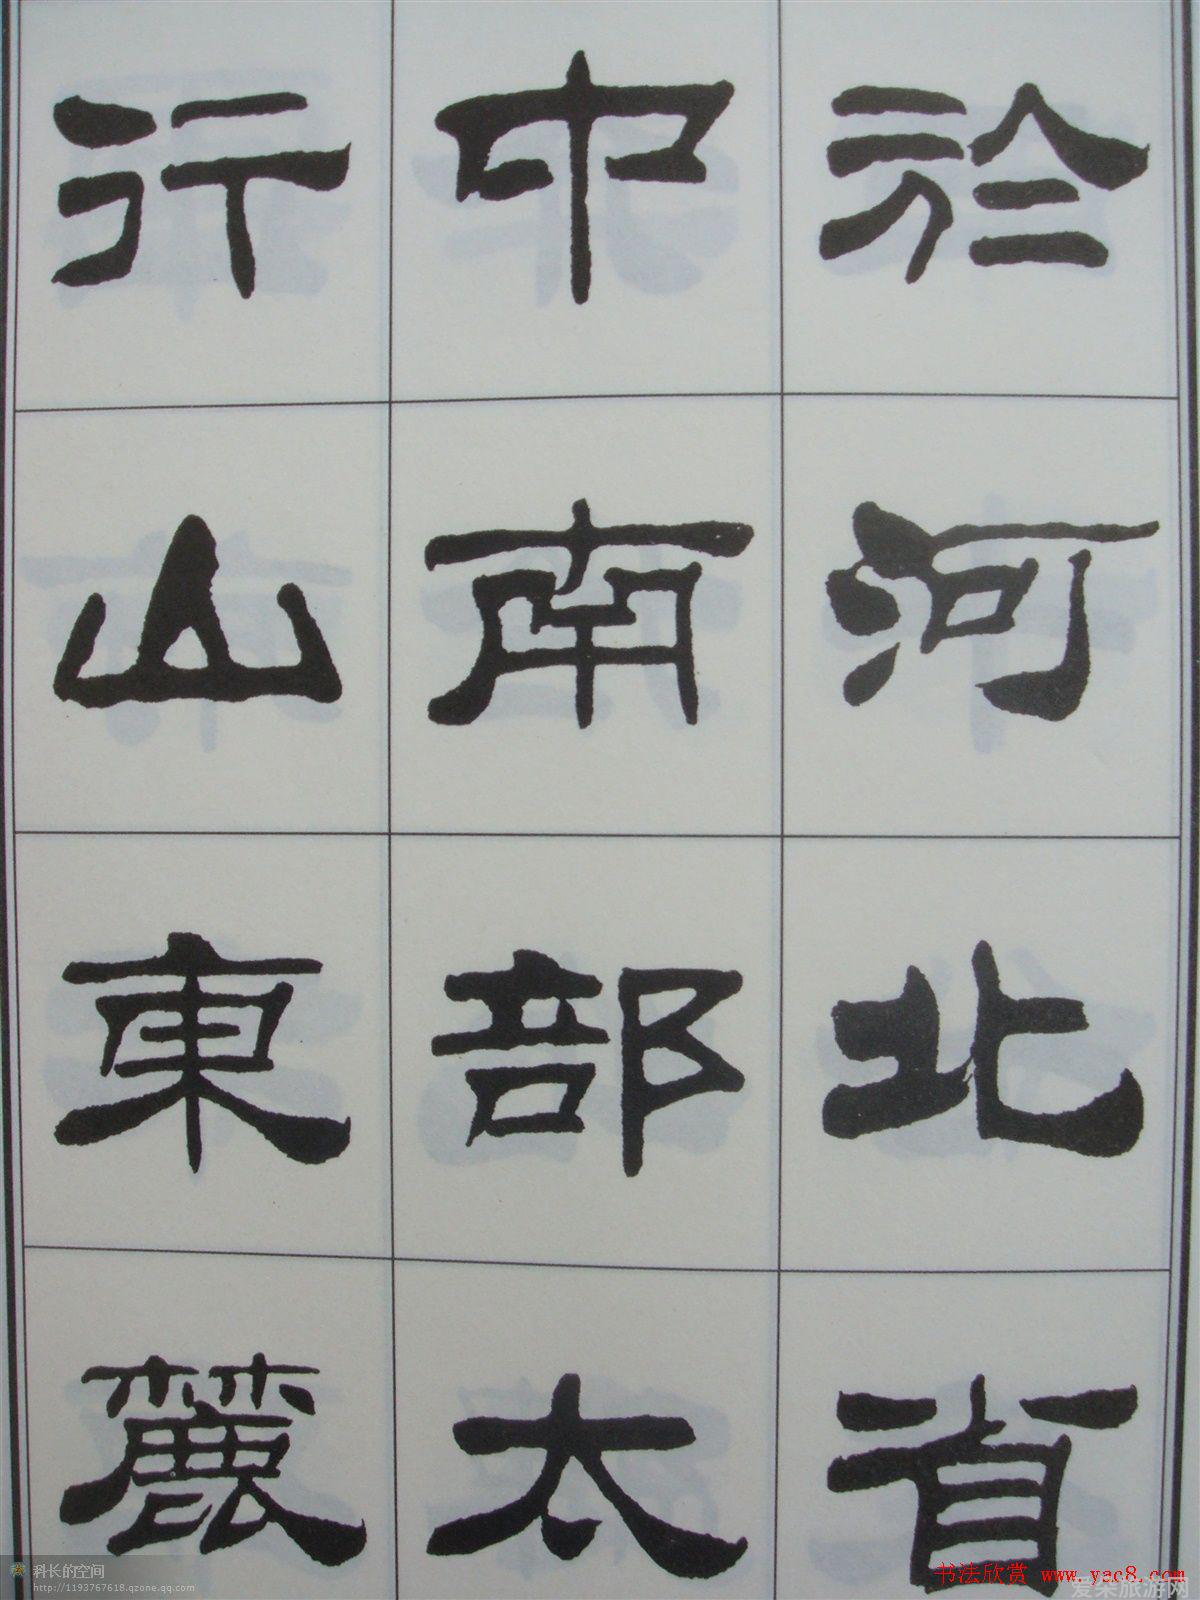 於河北省
中南部太
行山東麓
科长的空间
http://1193767618.qzone.qq.com
书法欣赏 www.yac8.com
爱采旅游网